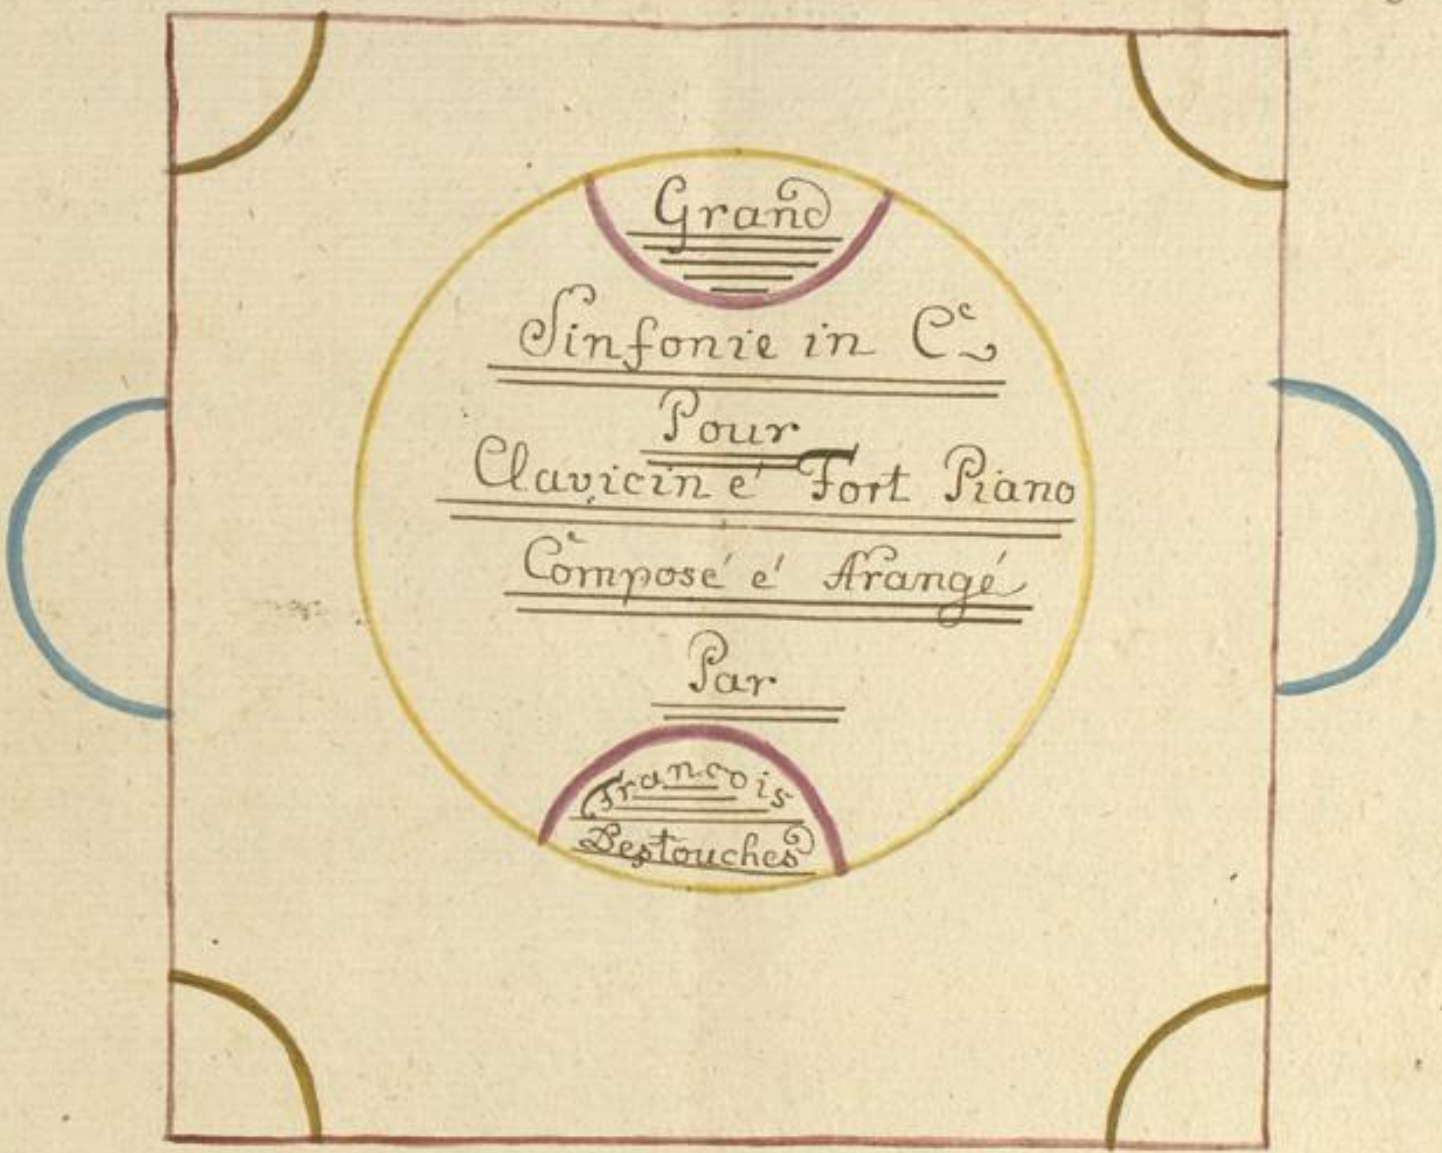 Grand
Sinfonie in C
Pour
Clavicin é Fort Piano
Composé é Arangé
Par
Francois
Destouches